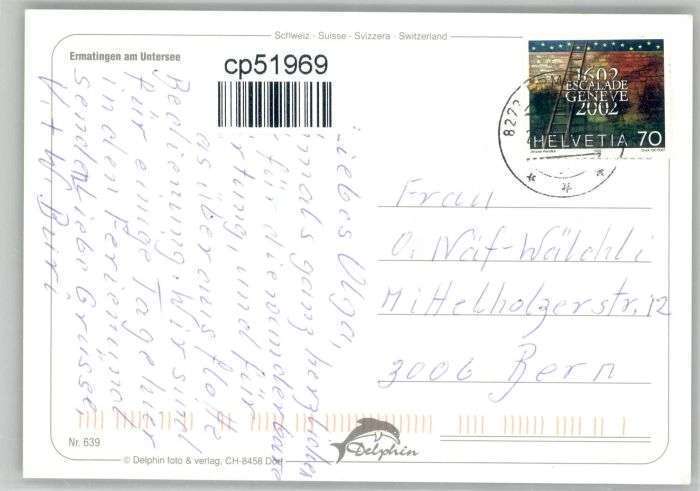 Schweiz · Suisse · Svizzera · Switzerland
Ermatingen am Untersee
cp51969
1602
ESCALADE
GENÈVE
2002
HELVETIA 70
8272
Liebes Olga,
ganz herzlichen
für die wunderbare
und für
das überaus flotte
Bedienung. Wir sind
für einige Tage hier
in den Ferien und
senden liebe Grüsse,
V. + W. Buri
Frau
O. Näf-Wälchli
Mittelholzerstr. 12
3006 Bern
Nr. 639
© Delphin foto & verlag, CH-8458 Dorf
Delphin